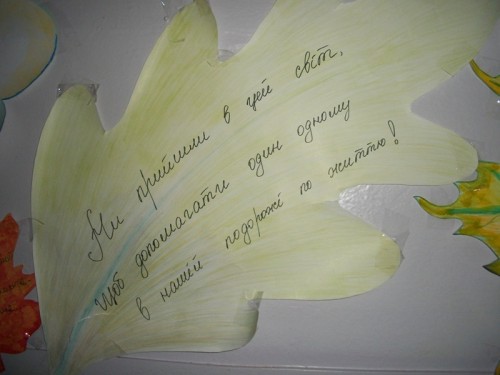 Ми прийшли в цей світ,
Щоб допомагати один одному
в нашій подорожі по життю!